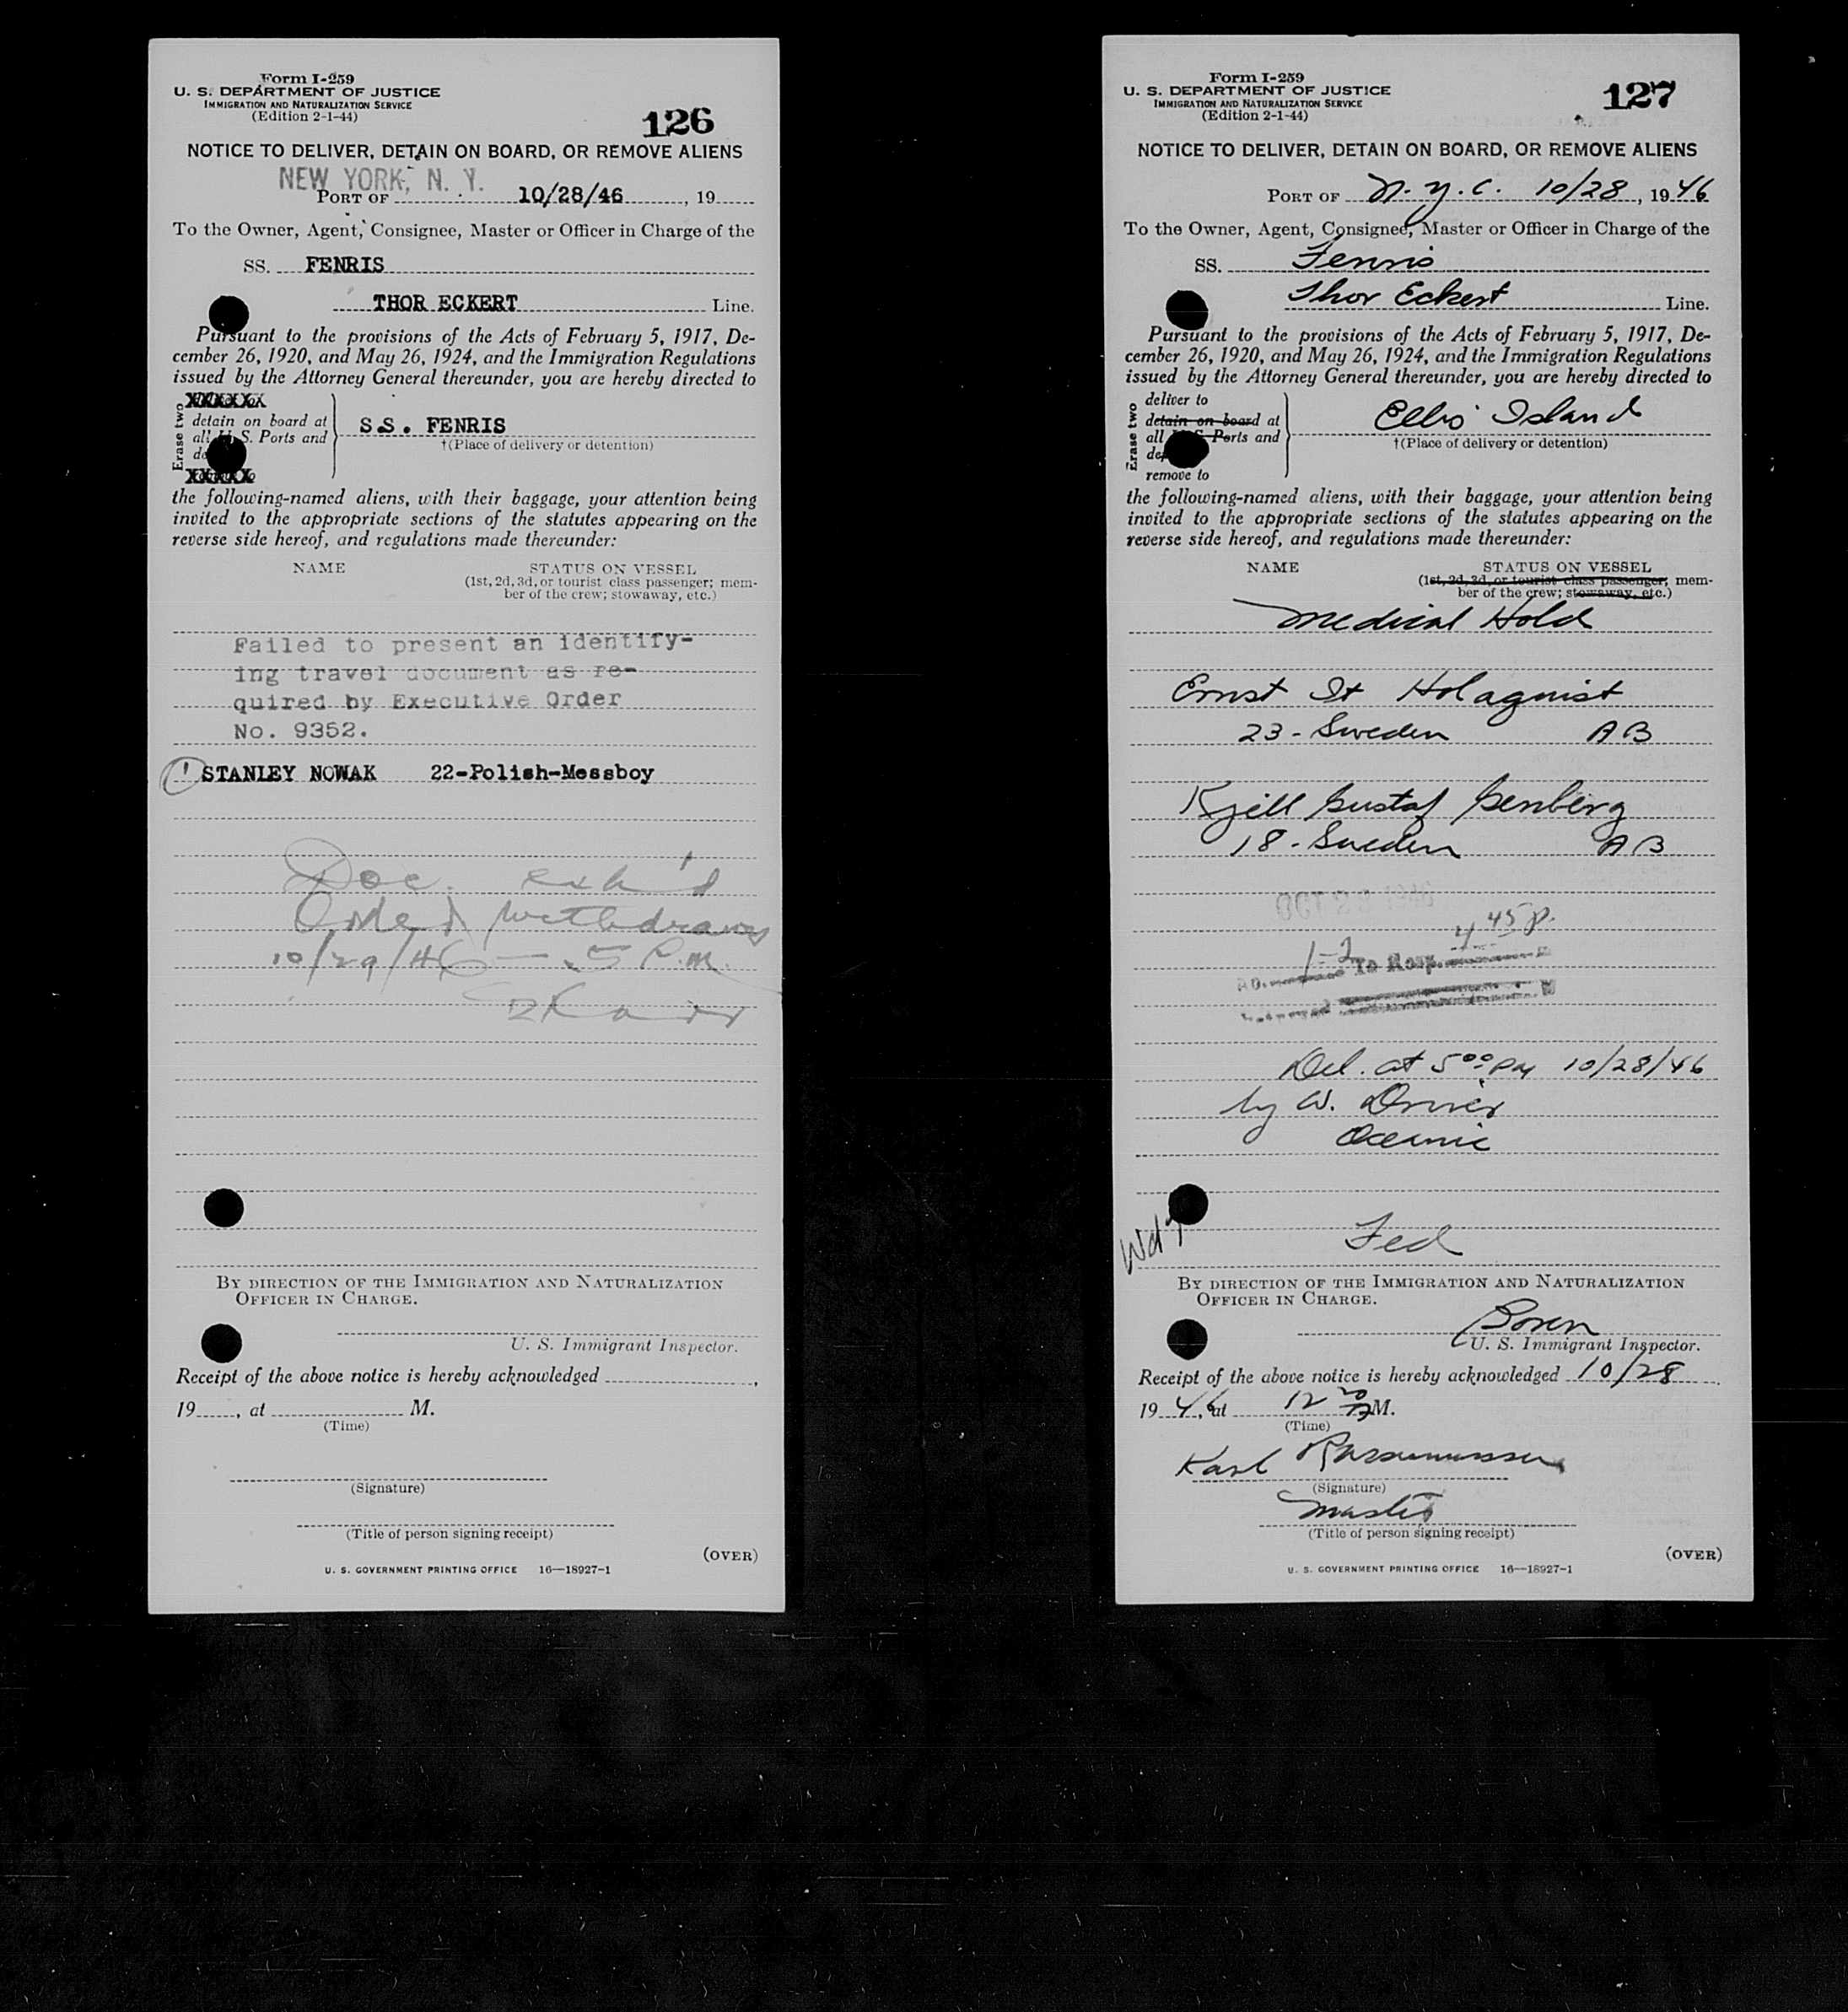 Form I-259
U. S. DEPARTMENT OF JUSTICE
IMMIGRATION AND NATURALIZATION SERVICE
(Edition 2-1-44)
126
NOTICE TO DELIVER, DETAIN ON BOARD, OR REMOVE ALIENS
NEW YORK, N. Y.
PORT OF 10/28/46, 19
To the Owner, Agent, Consignee, Master or Officer in Charge of the
SS. FENRIS
THOR ECKERT Line.
Pursuant to the provisions of the Acts of February 5, 1917, De-
cember 26, 1920, and May 26, 1924, and the Immigration Regulations
issued by the Attorney General thereunder, you are hereby directed to
Erase two
detain on board at
all U. S. Ports and
S.S. FENRIS
†(Place of delivery or detention)
the following-named aliens, with their baggage, your attention being
invited to the appropriate sections of the statutes appearing on the
reverse side hereof, and regulations made thereunder:
NAME STATUS ON VESSEL
(1st, 2d, 3d, or tourist class passenger; mem-
ber of the crew; stowaway, etc.)
Failed to present an identify-
ing travel document as re-
quired by Executive Order
No. 9352.
1 STANLEY NOWAK 22-Polish-Messboy
Doc. exh'd
Order withdrawn
10/29/46 - 5 P.M.
BY DIRECTION OF THE IMMIGRATION AND NATURALIZATION
OFFICER IN CHARGE.
U. S. Immigrant Inspector.
Receipt of the above notice is hereby acknowledged ,
19 , at M.
(Time)
(Signature)
(Title of person signing receipt)
(OVER)
U. S. GOVERNMENT PRINTING OFFICE 16—18927-1
Form I-259
U. S. DEPARTMENT OF JUSTICE
IMMIGRATION AND NATURALIZATION SERVICE
(Edition 2-1-44)
127
NOTICE TO DELIVER, DETAIN ON BOARD, OR REMOVE ALIENS
PORT OF N.Y.C. 10/28, 1946
To the Owner, Agent, Consignee, Master or Officer in Charge of the
SS. Fenris
Thor Eckert Line.
Pursuant to the provisions of the Acts of February 5, 1917, De-
cember 26, 1920, and May 26, 1924, and the Immigration Regulations
issued by the Attorney General thereunder, you are hereby directed to
Erase two
deliver to
detain on board at
all U. S. Ports and
remove to
Ellis Island
†(Place of delivery or detention)
the following-named aliens, with their baggage, your attention being
invited to the appropriate sections of the statutes appearing on the
reverse side hereof, and regulations made thereunder:
NAME STATUS ON VESSEL
(1st, 2d, 3d, or tourist class passenger; mem-
ber of the crew; stowaway, etc.)
Medical Hold
Ernst St Holmquist
23 - Sweden AB
Kjell Gustaf
18 - Sweden AB
OCT 28 1946
4 45 p.
1-2 To Hosp.
Del. at 5 00 PM 10/28/46
by W. Driver
Oceanic
Fed
BY DIRECTION OF THE IMMIGRATION AND NATURALIZATION
OFFICER IN CHARGE.
U. S. Immigrant Inspector.
Receipt of the above notice is hereby acknowledged 10/28
1946, at 12 20 M.
(Time)
Karl Rasmussen
(Signature)
Master
(Title of person signing receipt)
(OVER)
U. S. GOVERNMENT PRINTING OFFICE 16—18927-1